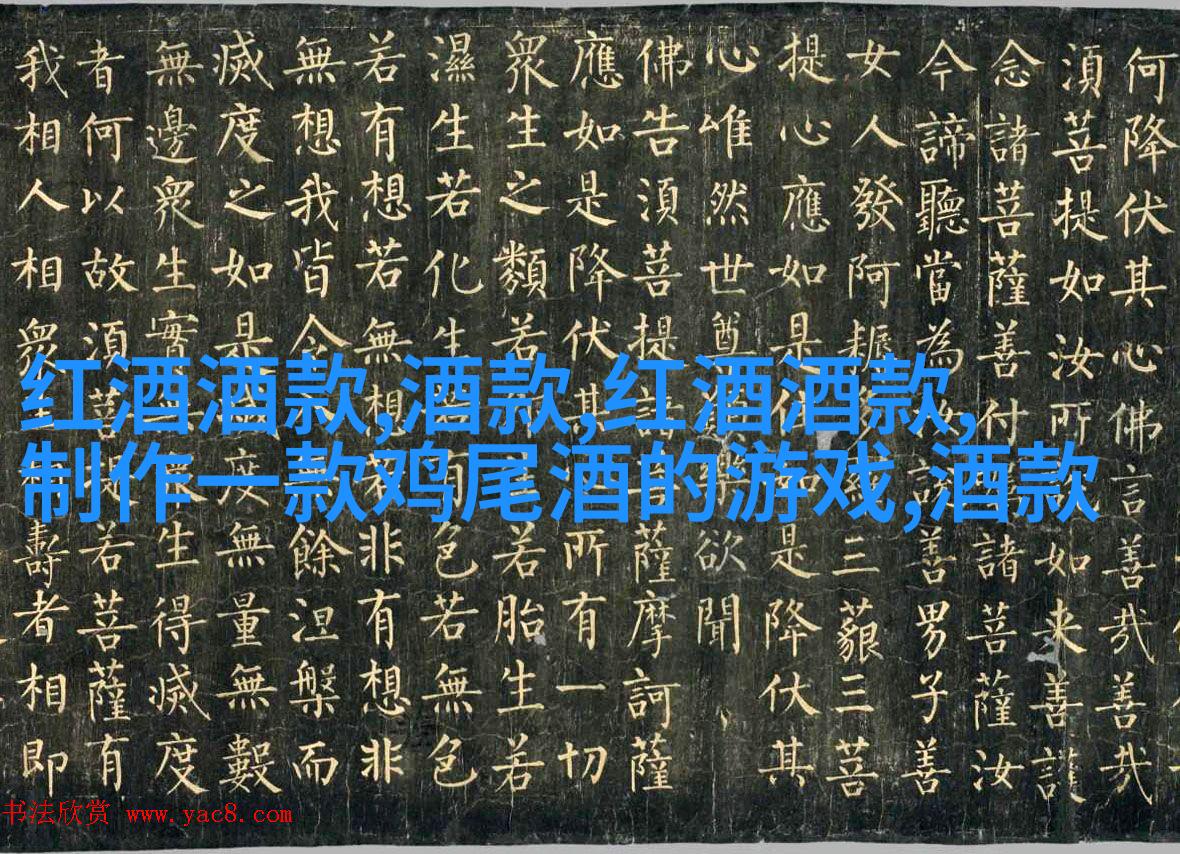 何降伏其心佛言善哉善哉
須菩提如汝所如来善護
念諸菩薩善付諸菩薩汝
今諦聽當為汝說善男子善
女人發阿耨三藐三菩
提心應如是住如是降伏其
心唯然世尊樂欲聞
佛告須菩提諸菩薩摩訶薩
應如是降伏其所有一切
眾生之類若生若胎生若
濕生若化生有色若無色
若有想若無想非有想非
無想我皆令無餘涅槃而
滅度之如是度無量無數
無邊眾生實生得滅度
者何以故須菩提若菩薩有
我相人相眾生相壽者相即
红酒酒款,酒款,红酒酒款,
制作一款鸡尾酒的游戏,酒款
书法欣赏 www.yac8.com